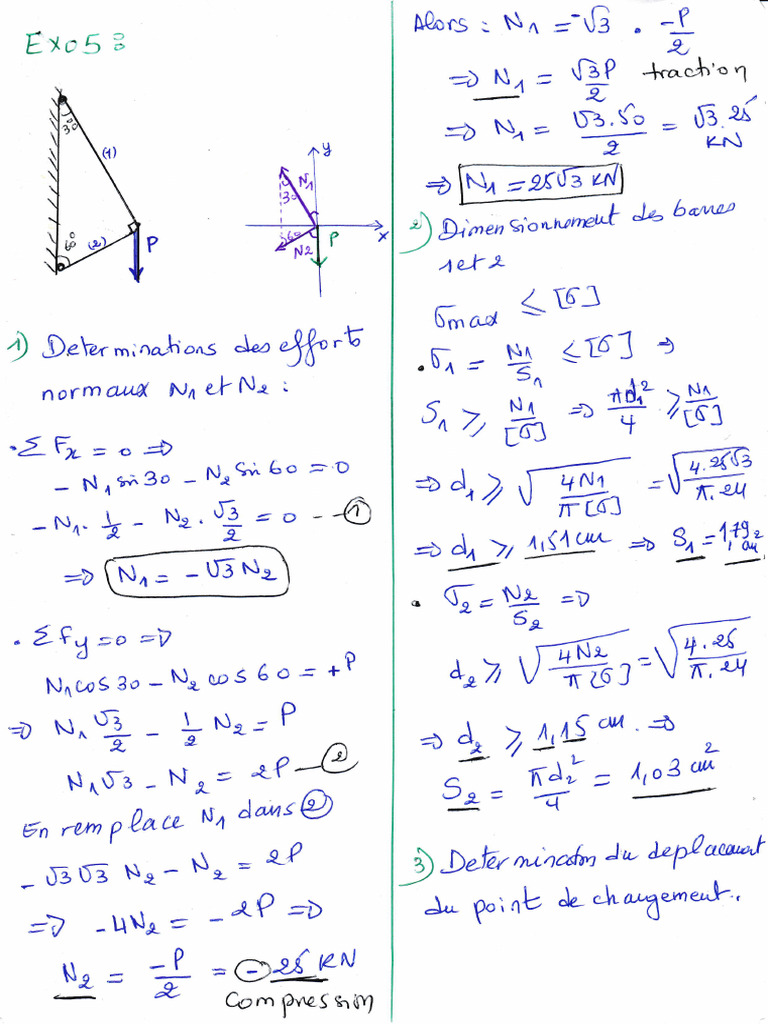 Exo5:
30°
(1)
60°
(2)
P
y
N1
30
60
N2
P
x
1) Determinations des efforts
normaux N1 et N2 :
• Σ Fx = 0 ⇒
- N1 sin 30 - N2 sin 60 = 0
- N1 . 1/2 - N2 . √3/2 = 0 --①
⇒ N1 = - √3 N2
• Σ Fy = 0 ⇒
N1 cos 30 - N2 cos 60 = + P
⇒ N1 √3/2 - 1/2 N2 = P
N1 √3 - N2 = 2P —②
En remplace N1 dans ②
- √3 √3 N2 - N2 = 2P
⇒ - 4N2 = - 2P ⇒
N2 = -P/2 = - 25 KN
compression
Alors : N1 = - √3 . -P/2
⇒ N1 = √3P/2 traction
⇒ N1 = √3.50/2 = √3.25 KN
⇒ N1 = 25√3 KN
2) Dimensionnement des barres
1 et 2
σmax ≤ [σ]
• σ1 = N1/S1 ≤ [σ] ⇒
S1 ≥ N1/[σ] ⇒ πd1²/4 ≥ N1/[σ]
⇒ d1 ≥ √(4N1/π[σ]) = √(4.25√3/π.24)
⇒ d1 ≥ 1,51 cm ⇒ S1 = 1,79 cm²
• σ2 = N2/S2 ⇒
d2 ≥ √(4N2/π[σ]) = √(4.25/π.24)
⇒ d2 ≥ 1,15 cm. ⇒
S2 = πd2²/4 = 1,03 cm²
3) Determination du deplacement
du point de changement..